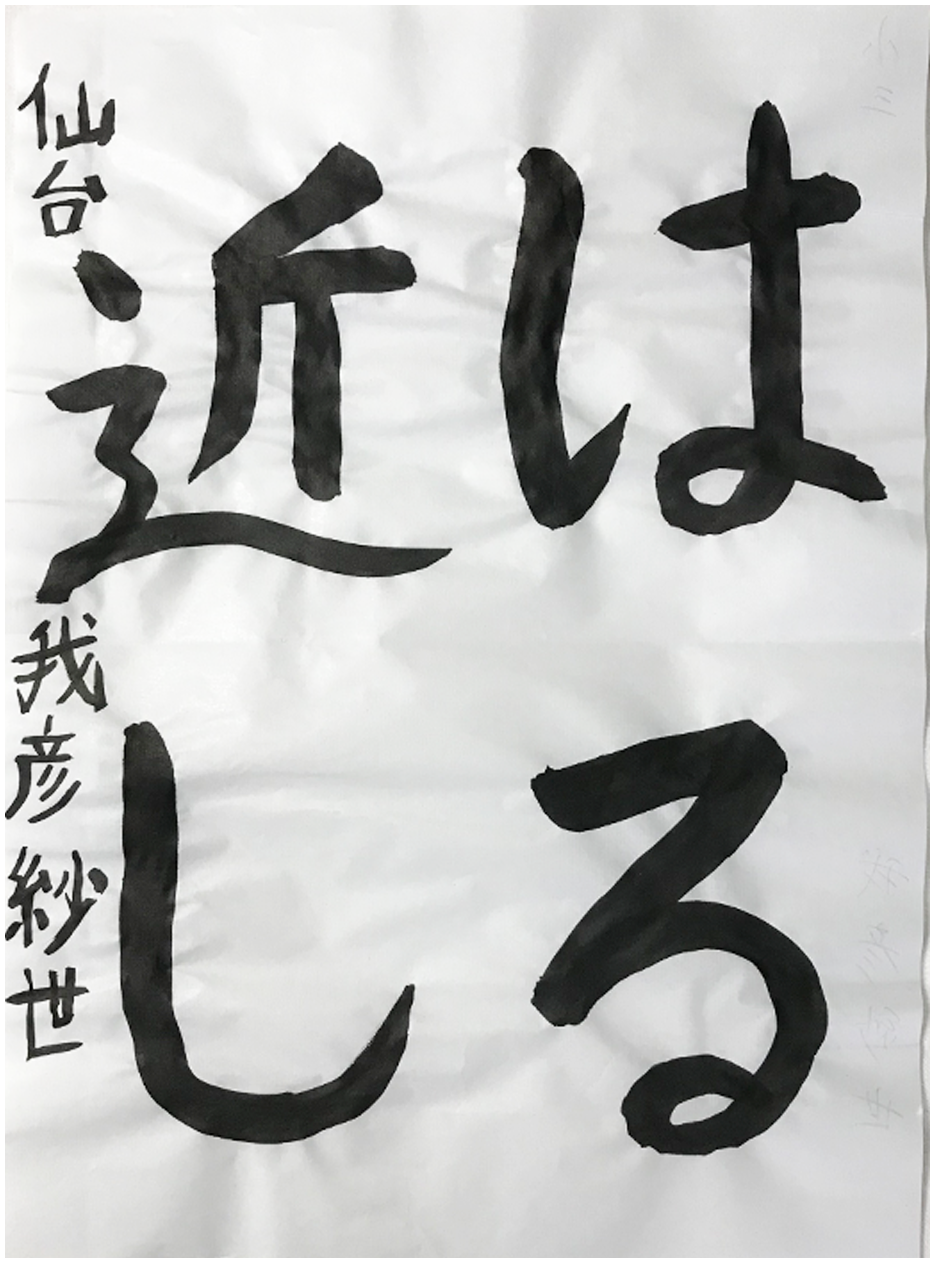 はる
近し
仙台 我彦紗世